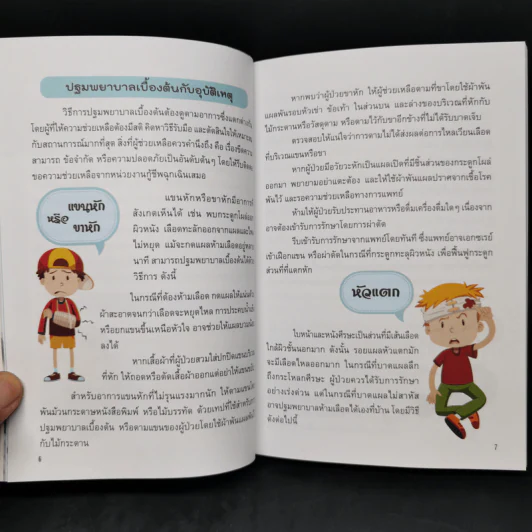 ปฐมพยาบาลเบื้องต้นกับอุบัติเหตุ
วิธีการปฐมพยาบาลเบื้องต้นต้องดูตามอาการซึ่งแตกต่างกัน
โดยผู้ที่ให้ความช่วยเหลือต้องมีสติ คิดหาวิธีรับมือ และตัดสินใจให้เหมาะสม
กับสถานการณ์มากที่สุด สิ่งที่ผู้ช่วยเหลือควรคำนึงถึง คือ เรื่องขีดความ
สามารถ ข้อจำกัด หรือความปลอดภัยเป็นอันดับต้นๆ โดยให้รีบติดต่อ
ขอความช่วยเหลือจากหน่วยงานกู้ชีพฉุกเฉินเสมอ
แขนหัก
หรือ
ขาหัก
แขนหักหรือขาหักมีอาการ
สังเกตเห็นได้ เช่น พบกระดูกโผล่ออก
ผิวหนัง เลือดทะลักออกจากแผลและไหล
ไม่หยุด แม้จะกดแผลห้ามเลือดอยู่หลาย
นาที สามารถปฐมพยาบาลเบื้องต้นได้ด้วย
วิธีการ ดังนี้
ในกรณีที่ต้องห้ามเลือด กดแผลให้แน่นด้วย
ผ้าสะอาดจนกว่าเลือดจะหยุดไหล การประคบน้ำแข็ง
หรือยกแขนขึ้นเหนือหัวใจ อาจช่วยให้แผลบวมน้อย
ลงได้
หากเสื้อผ้าที่ผู้ป่วยสวมใส่ปกปิดแขนบริเวณ
ที่หัก ให้ถอดหรือตัดเสื้อผ้าออกแต่อย่าให้แขนขยับ
สำหรับอาการแขนหักที่ไม่รุนแรงมากนัก ให้ดามแขนโดย
พันม้วนกระดาษหนังสือพิมพ์ หรือไม้บรรทัด ด้วยเทปที่ใช้สำหรับการ
ปฐมพยาบาลเบื้องต้น หรือดามแขนของผู้ป่วยโดยใช้ผ้าพันแผลพันไว้
กับไม้กระดาน
6
หากพบว่าผู้ป่วยขาหัก ให้ผู้ช่วยเหลือดามที่ขาโดยใช้ผ้าพัน
แผลพันรอบหัวเข่า ข้อเท้า ในส่วนบน และล่างของบริเวณที่หักกับ
ไม้กระดานหรือวัสดุดาม หรือดามไว้กับขาอีกข้างที่ไม่ได้รับบาดเจ็บ
ตรวจสอบให้แน่ใจว่าการดามไม่ได้ส่งผลต่อการไหลเวียนเลือด
ที่บริเวณแขนหรือขา
หากผู้ป่วยมีอวัยวะหักเป็นแผลเปิดที่มีชิ้นส่วนของกระดูกโผล่
ออกมา พยายามอย่าแตะต้อง และให้ใช้ผ้าพันแผลปราศจากเชื้อโรค
พันไว้ และรอความช่วยเหลือทางการแพทย์
ห้ามให้ผู้ป่วยรับประทานอาหารหรือดื่มเครื่องดื่มใดๆ เนื่องจาก
อาจต้องเข้ารับการรักษาโดยการผ่าตัด
รีบเข้ารับการรักษาจากแพทย์โดยทันที ซึ่งแพทย์อาจเอกซเรย์
เข้าเฝือกแขน หรือผ่าตัดในกรณีที่กระดูกทะลุผิวหนัง เพื่อฟื้นฟูกระดูก
ส่วนที่แตกหัก
หัวแตก
ใบหน้าและหนังศีรษะเป็นส่วนที่มีเส้นเลือด
ใกล้ผิวชั้นนอกมาก ดังนั้น รอยแผลหัวแตกมัก
จะมีเลือดไหลออกมาก ในกรณีที่บาดแผลลึก
ถึงกระโหลกศีรษะ ผู้ป่วยควรได้รับการรักษา
อย่างเร่งด่วน แต่ในกรณีที่บาดแผลไม่สาหัส
อาจปฐมพยาบาลห้ามเลือดได้เองที่บ้าน โดยมีวิธี
ดังต่อไปนี้
7